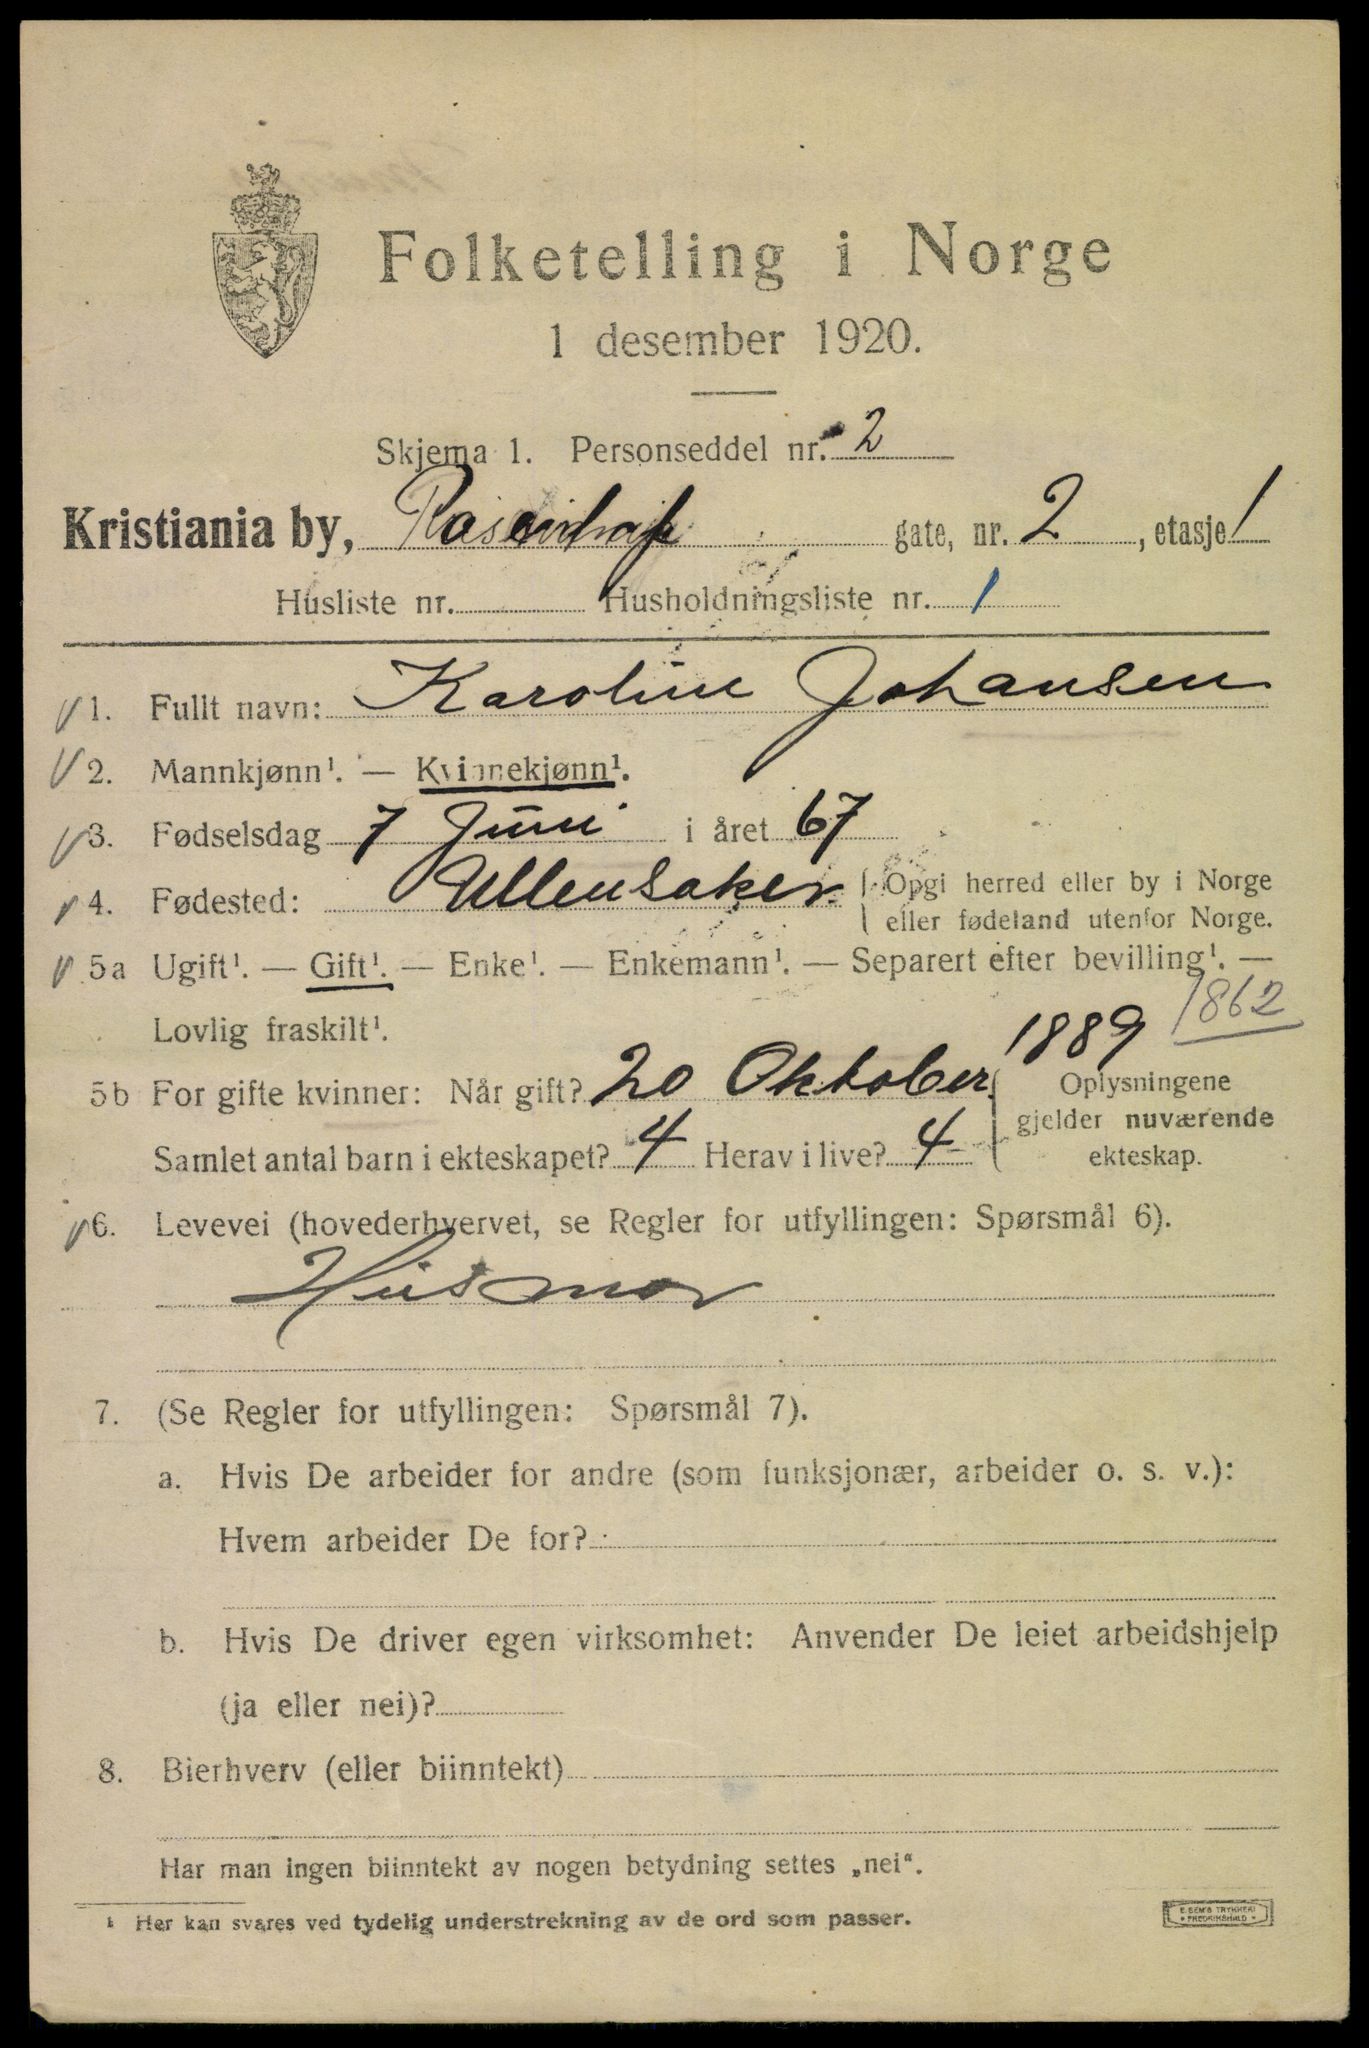 Folketelling i Norge
1 desember 1920.
Skjema 1. Personseddel nr. 2
Kristiania by, gate, nr. 2, etasje 1
Husliste nr. Husholdningsliste nr. 1
1. Fullt navn: Karoline Johansen
2. Mannkjønn¹. — Kvinnekjønn¹.
3. Fødselsdag 7 Juni i året 67
4. Fødested: Ullensaker Opgi herred eller by i Norge
eller fødeland utenfor Norge.
5a Ugift¹. — Gift¹. — Enke¹. — Enkemann¹. — Separert efter bevilling¹. —
Lovlig fraskilt¹. 1889 1862
5b For gifte kvinner: Når gift? 20 Oktober Oplysningene
gjelder nuværende
Samlet antal barn i ekteskapet? 4 Herav i live? 4 ekteskap.
6. Levevei (hovederhvervet, se Regler for utfyllingen: Spørsmål 6).
Husmor
7. (Se Regler for utfyllingen: Spørsmål 7).
a. Hvis De arbeider for andre (som funksjonær, arbeider o. s. v.):
Hvem arbeider De for?
b. Hvis De driver egen virksomhet: Anvender De leiet arbeidshjelp
(ja eller nei)?
8. Bierhverv (eller biinntekt)
Har man ingen biinntekt av nogen betydning settes „nei“.
¹ Her kan svares ved tydelig understrekning av de ord som passer.
E. SEM'S TRYKKERI
FREDRIKSHALD